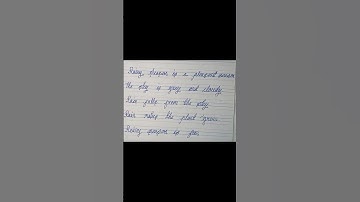 Rainy season is a pleasant season
the sky is grey and cloudy
Rain falls from the sky
Rain makes the plant grow
Rainy season is fun